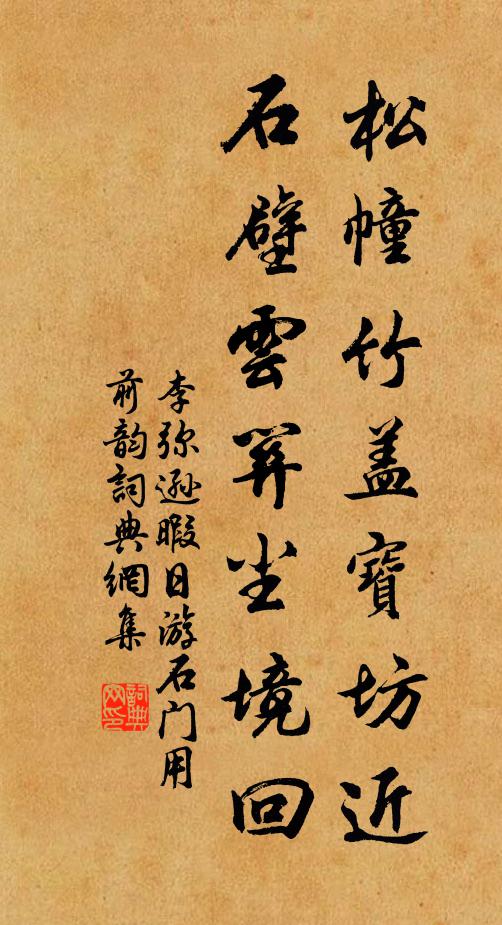 松幢竹盖寳坊近
石壁雲開尘境回
李弥逊暇日游石门用
前韵词典網集
詞典
网印